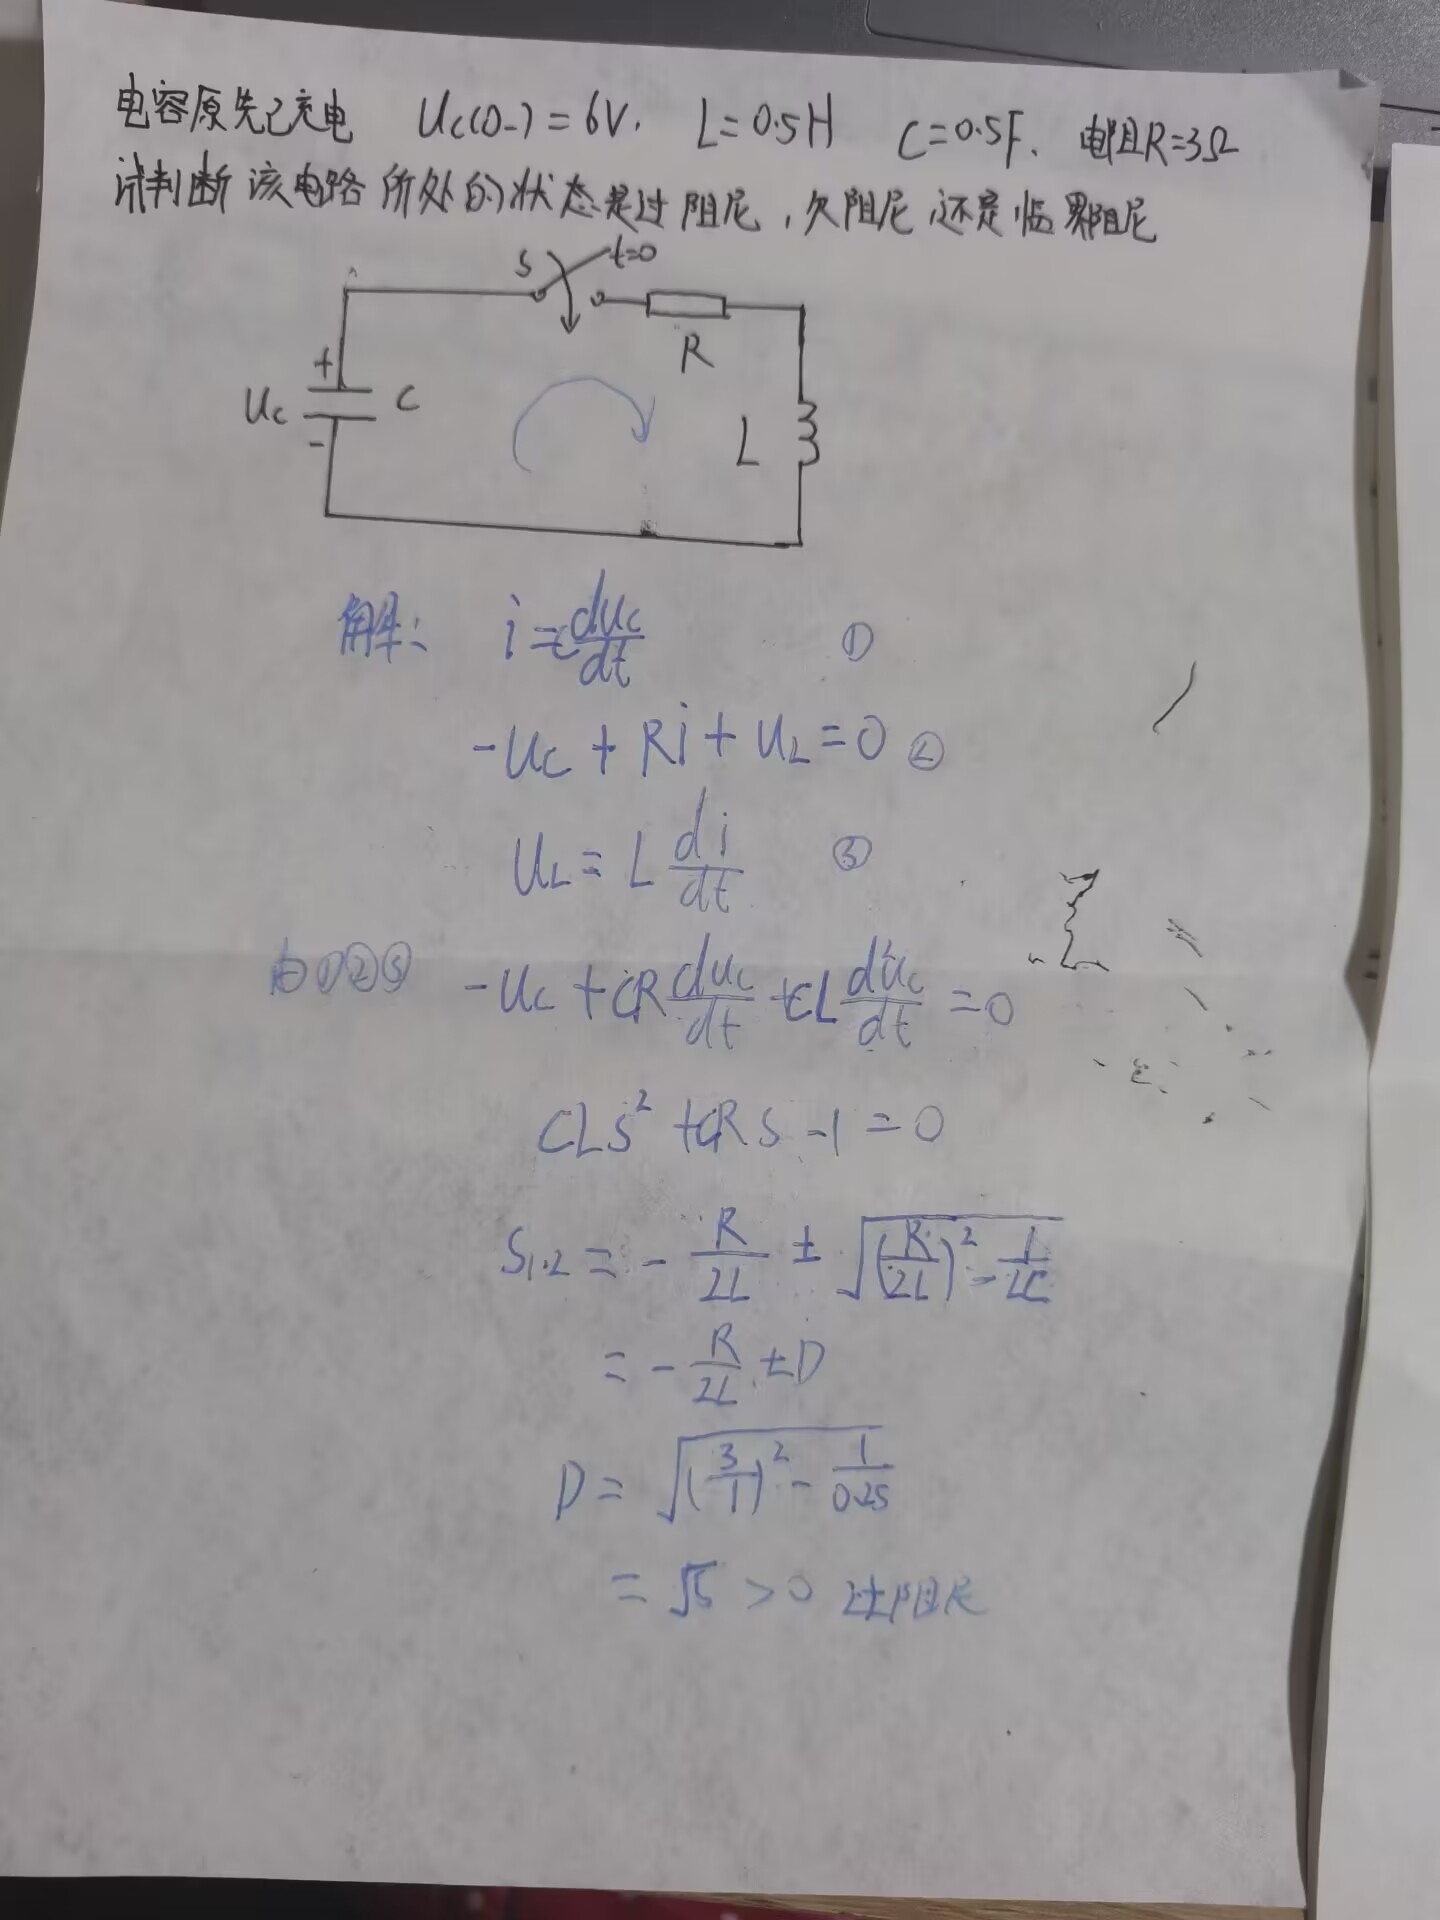 电容原先已充电 Uc(0-)=6V. L=0.5H C=0.5F. 电阻R=3Ω
试判断该电路所处的状态是过阻尼,欠阻尼,还是临界阻尼
S t=0
R
+
Uc C
-
L
解: i=C duc/dt ①
-Uc + Ri + UL = 0 ②
UL = L di/dt ③
由①②③ -Uc + CR duc/dt + CL d²uc/dt = 0
CLS² + CRS - 1 = 0
S1.2 = - R/2L ± √((R/2L)² - 1/LC)
= - R/2L ± D
D = √((3/1)² - 1/0.25)
= √5 > 0 过阻尼